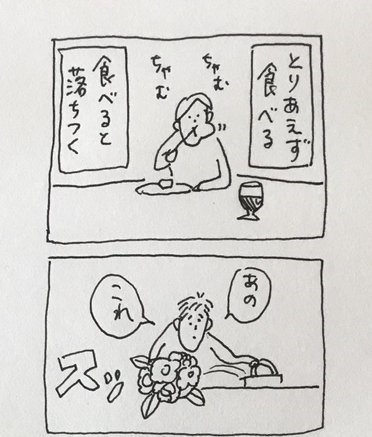 とりあえず
食べる
ちゃむ
ちゃむ
食べると
落ちつく
あの
これ
スッ